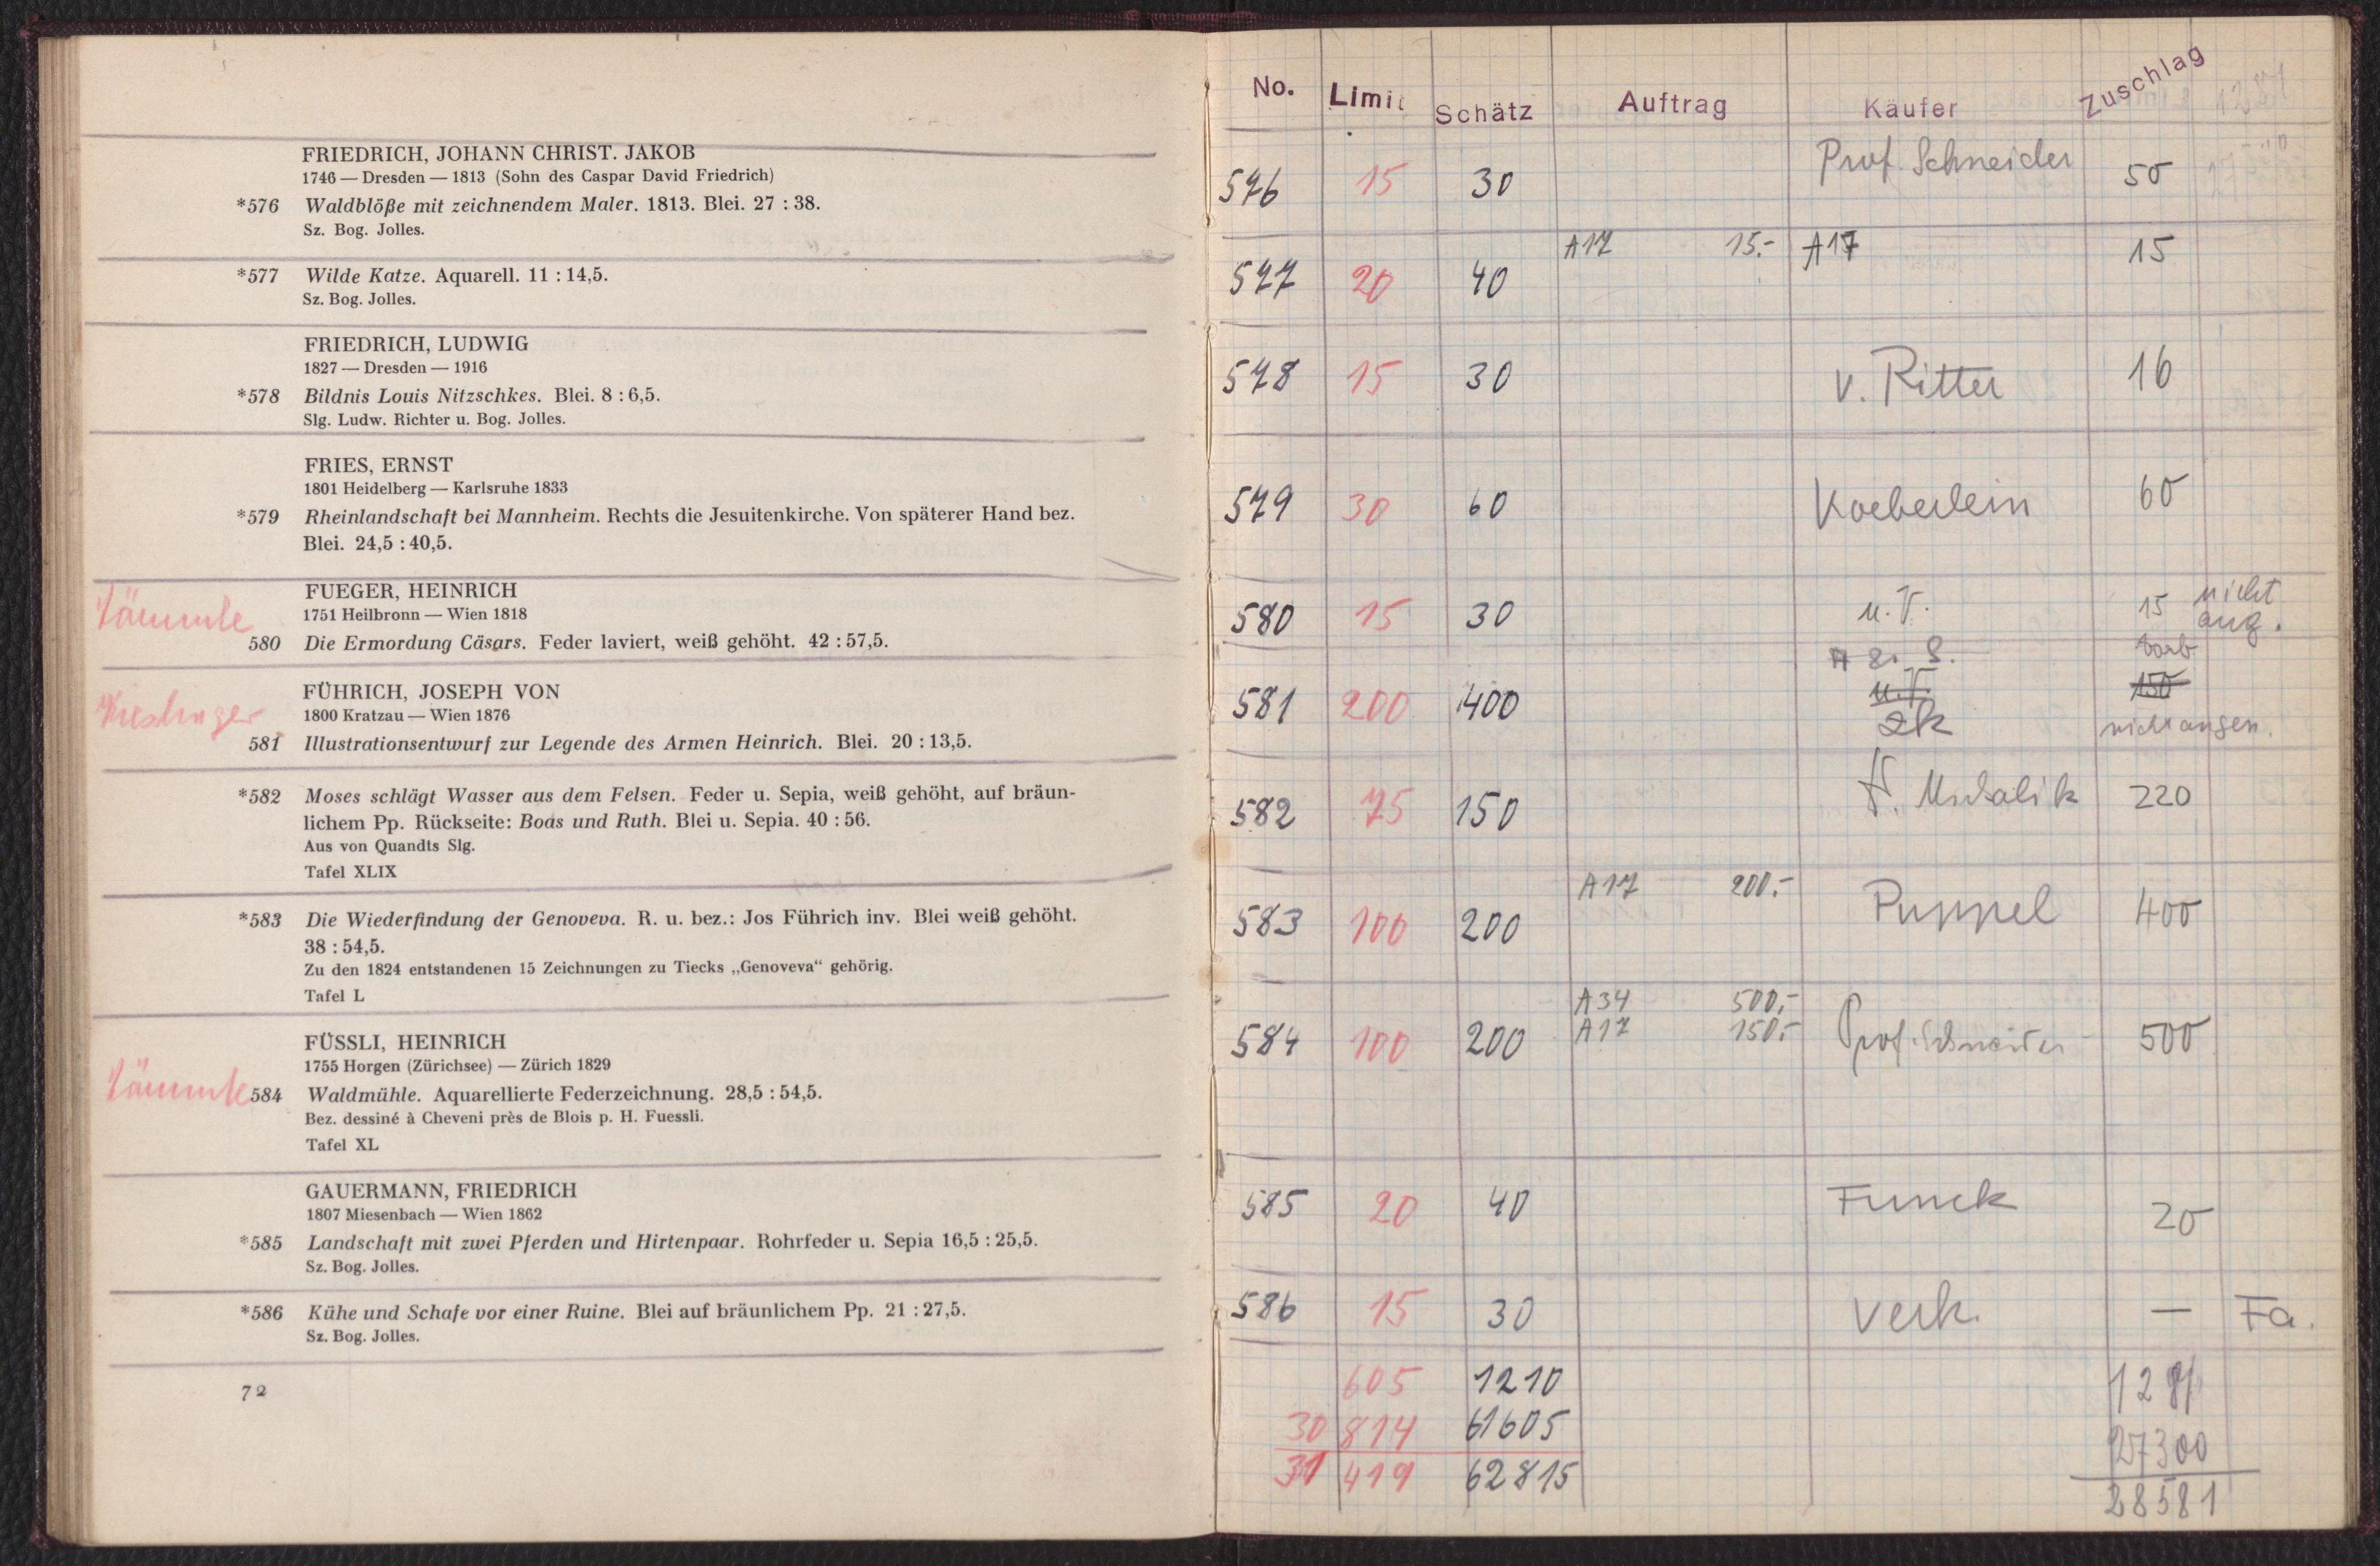 FRIEDRICH, JOHANN CHRIST. JAKOB
1746 — Dresden — 1813 (Sohn des Caspar David Friedrich)
*576 Waldblöße mit zeichnendem Maler. 1813. Blei. 27 : 38.
Sz. Bog. Jolles.
*577 Wilde Katze. Aquarell. 11 : 14,5.
Sz. Bog. Jolles.
FRIEDRICH, LUDWIG
1827 — Dresden — 1916
*578 Bildnis Louis Nitzschkes. Blei. 8 : 6,5.
Slg. Ludw. Richter u. Bog. Jolles.
FRIES, ERNST
1801 Heidelberg — Karlsruhe 1833
*579 Rheinlandschaft bei Mannheim. Rechts die Jesuitenkirche. Von späterer Hand bez.
Blei. 24,5 : 40,5.
FUEGER, HEINRICH
1751 Heilbronn — Wien 1818
580 Die Ermordung Cäsars. Feder laviert, weiß gehöht. 42 : 57,5.
FÜHRICH, JOSEPH VON
1800 Kratzau — Wien 1876
581 Illustrationsentwurf zur Legende des Armen Heinrich. Blei. 20 : 13,5.
*582 Moses schlägt Wasser aus dem Felsen. Feder u. Sepia, weiß gehöht, auf bräun-
lichem Pp. Rückseite: Boas und Ruth. Blei u. Sepia. 40 : 56.
Aus von Quandts Slg.
Tafel XLIX
*583 Die Wiederfindung der Genoveva. R. u. bez.: Jos Führich inv. Blei weiß gehöht.
38 : 54,5.
Zu den 1824 entstandenen 15 Zeichnungen zu Tiecks „Genoveva“ gehörig.
Tafel L
FÜSSLI, HEINRICH
1755 Horgen (Zürichsee) — Zürich 1829
584 Waldmühle. Aquarellierte Federzeichnung. 28,5 : 54,5.
Bez. dessiné à Cheveni près de Blois p. H. Fuessli.
Tafel XL
GAUERMANN, FRIEDRICH
1807 Miesenbach — Wien 1862
*585 Landschaft mit zwei Pferden und Hirtenpaar. Rohrfeder u. Sepia 16,5 : 25,5.
Sz. Bog. Jolles.
*586 Kühe und Schafe vor einer Ruine. Blei auf bräunlichem Pp. 21 : 27,5.
Sz. Bog. Jolles.
72
No. Limit Schätz Auftrag Käufer Zuschlag
576 15 30 Prof. Schneider 50
577 20 40 A17 15.- A17 15
578 15 30 v. Ritter 16
579 30 60 Koeberlein 60
580 15 30 u. V. 15 nicht
ang.
581 200 400 u. V. 150
zk nicht angen.
582 75 150 220
583 100 200 A17 200.- Puppel 400
A34 500,-
584 100 200 A17 150,- Prof. Schneider 500
585 20 40 Funck 20
586 15 30 Verk. — Fa.
605 1210 1281
30 814 61605 27300
31 419 62815 28581